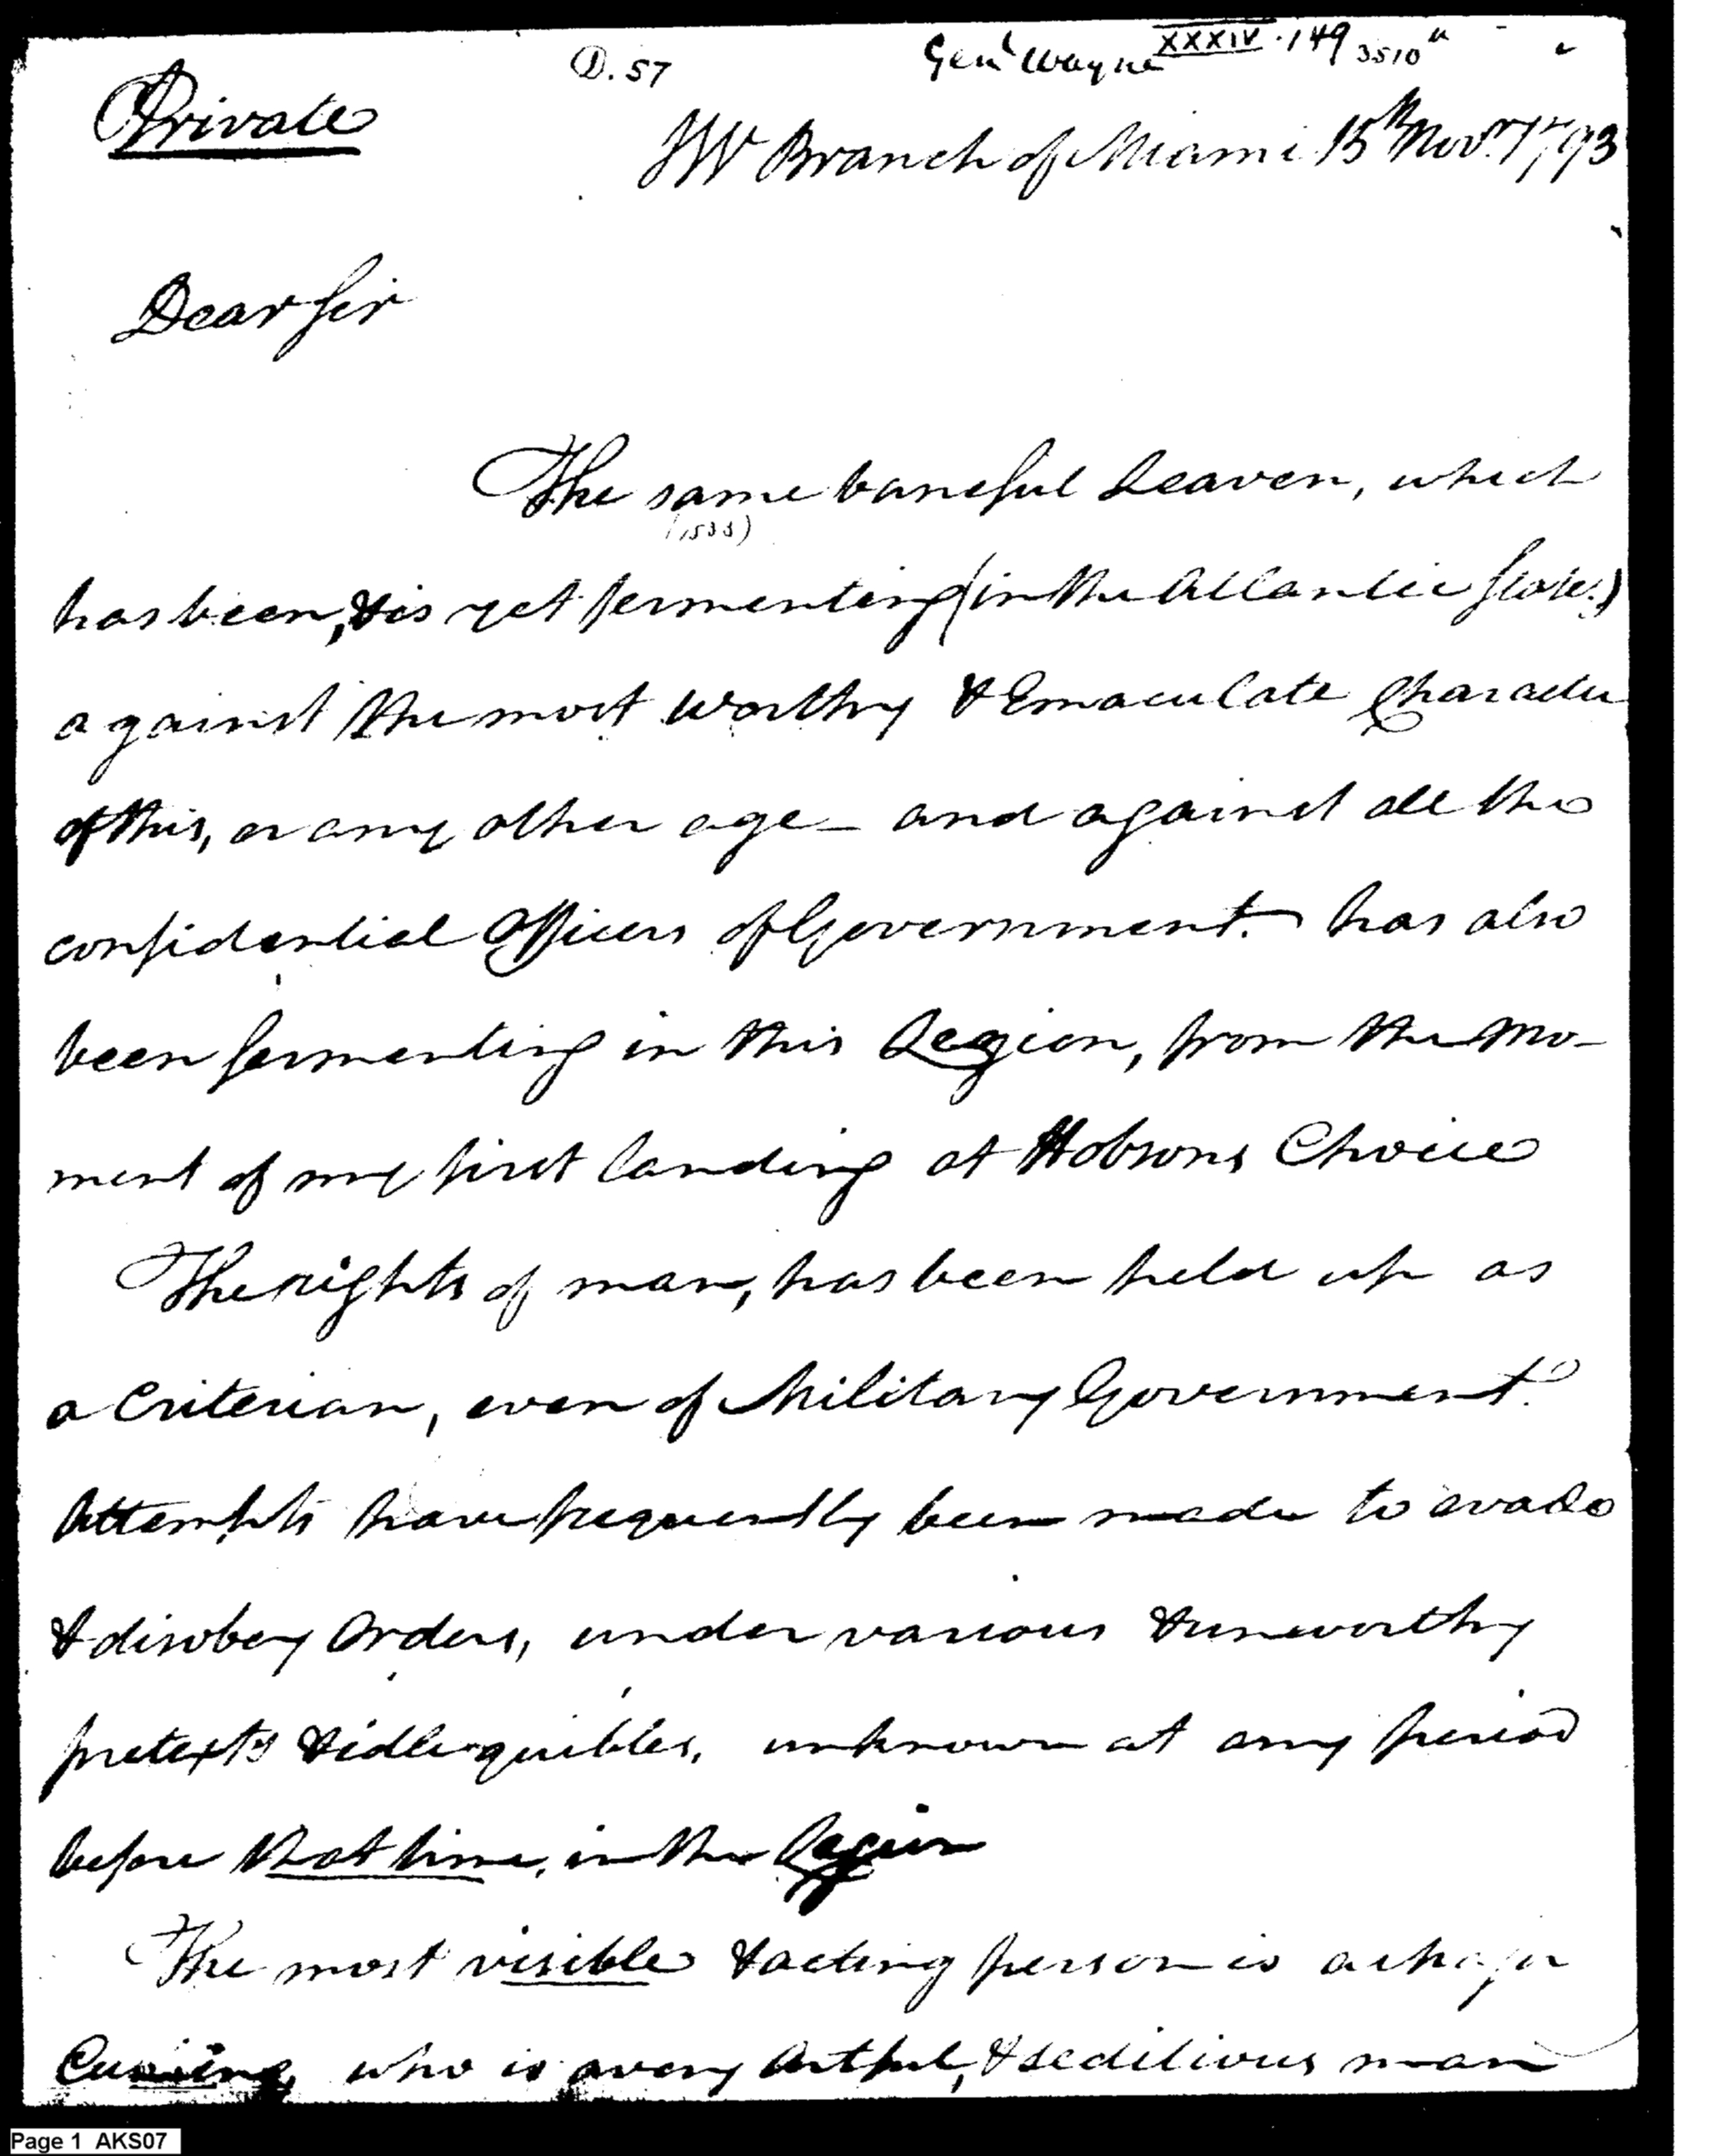 D. 57
Genl Wayne XXXIV. 149 3510
Private
SW Branch of Miami 15th Novr. 1793
Dear Sir
The same baneful Leaven, which
(1533)
has been, & is yet fermenting (in the Atlantic States)
against the most worthy & Emaculate Character
of this, or any other age - and against all the
confidential Officers of Government. has also
been fermenting in this Legion, from the Mo-
ment of my first landing at Hobsons Choice
The rights of man, has been held up as
a Criterian, even of Military Government.
Attempts have frequently been made to evade
& disobey Orders, under various & unworthy
pretexts & idle quibbles, unknown at any period
before that time, in the Legion
The most visible & acting person is a Major
Cushing, who is a very Artful, & seditious man
Page 1 AKS07